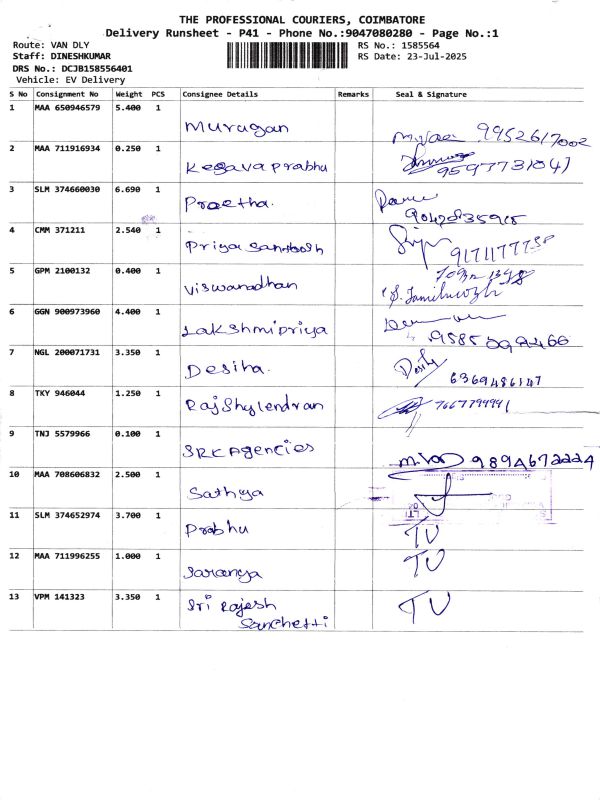 THE PROFESSIONAL COURIERS, COIMBATORE
Delivery Runsheet - P41 - Phone No.:9047080280 - Page No.:1
Route: VAN DLY
RS No.: 1585564
Staff: DINESHKUMAR
RS Date: 23-Jul-2025
DRS No.: DCJB158556401
Vehicle: EV Delivery
S No Consignment No Weight PCS Consignee Details Remarks Seal & Signature
1 MAA 650946579 5.400 1 Murugan 9952617002
2 MAA 711916934 0.250 1 Kesavaprabhu
3 SLM 374660030 6.690 1 Praetha.
4 CMM 371211 2.540 1 Priya Santhosh
5 GPM 2100132 0.400 1 Viswanadhan
6 GGN 900973960 4.400 1 Lakshmipriya
7 NGL 200071731 3.350 1 Desiha. 6369486147
8 TKY 946044 1.250 1 RajShylendran
9 TNJ 5579966 0.100 1 SRK Agencies
10 MAA 708606832 2.500 1 Sathya
11 SLM 374652974 3.700 1 Prabhu TU
12 MAA 711996255 1.000 1 Saranya TU
13 VPM 141323 3.350 1 Sri Rajesh TU
Sanchetti